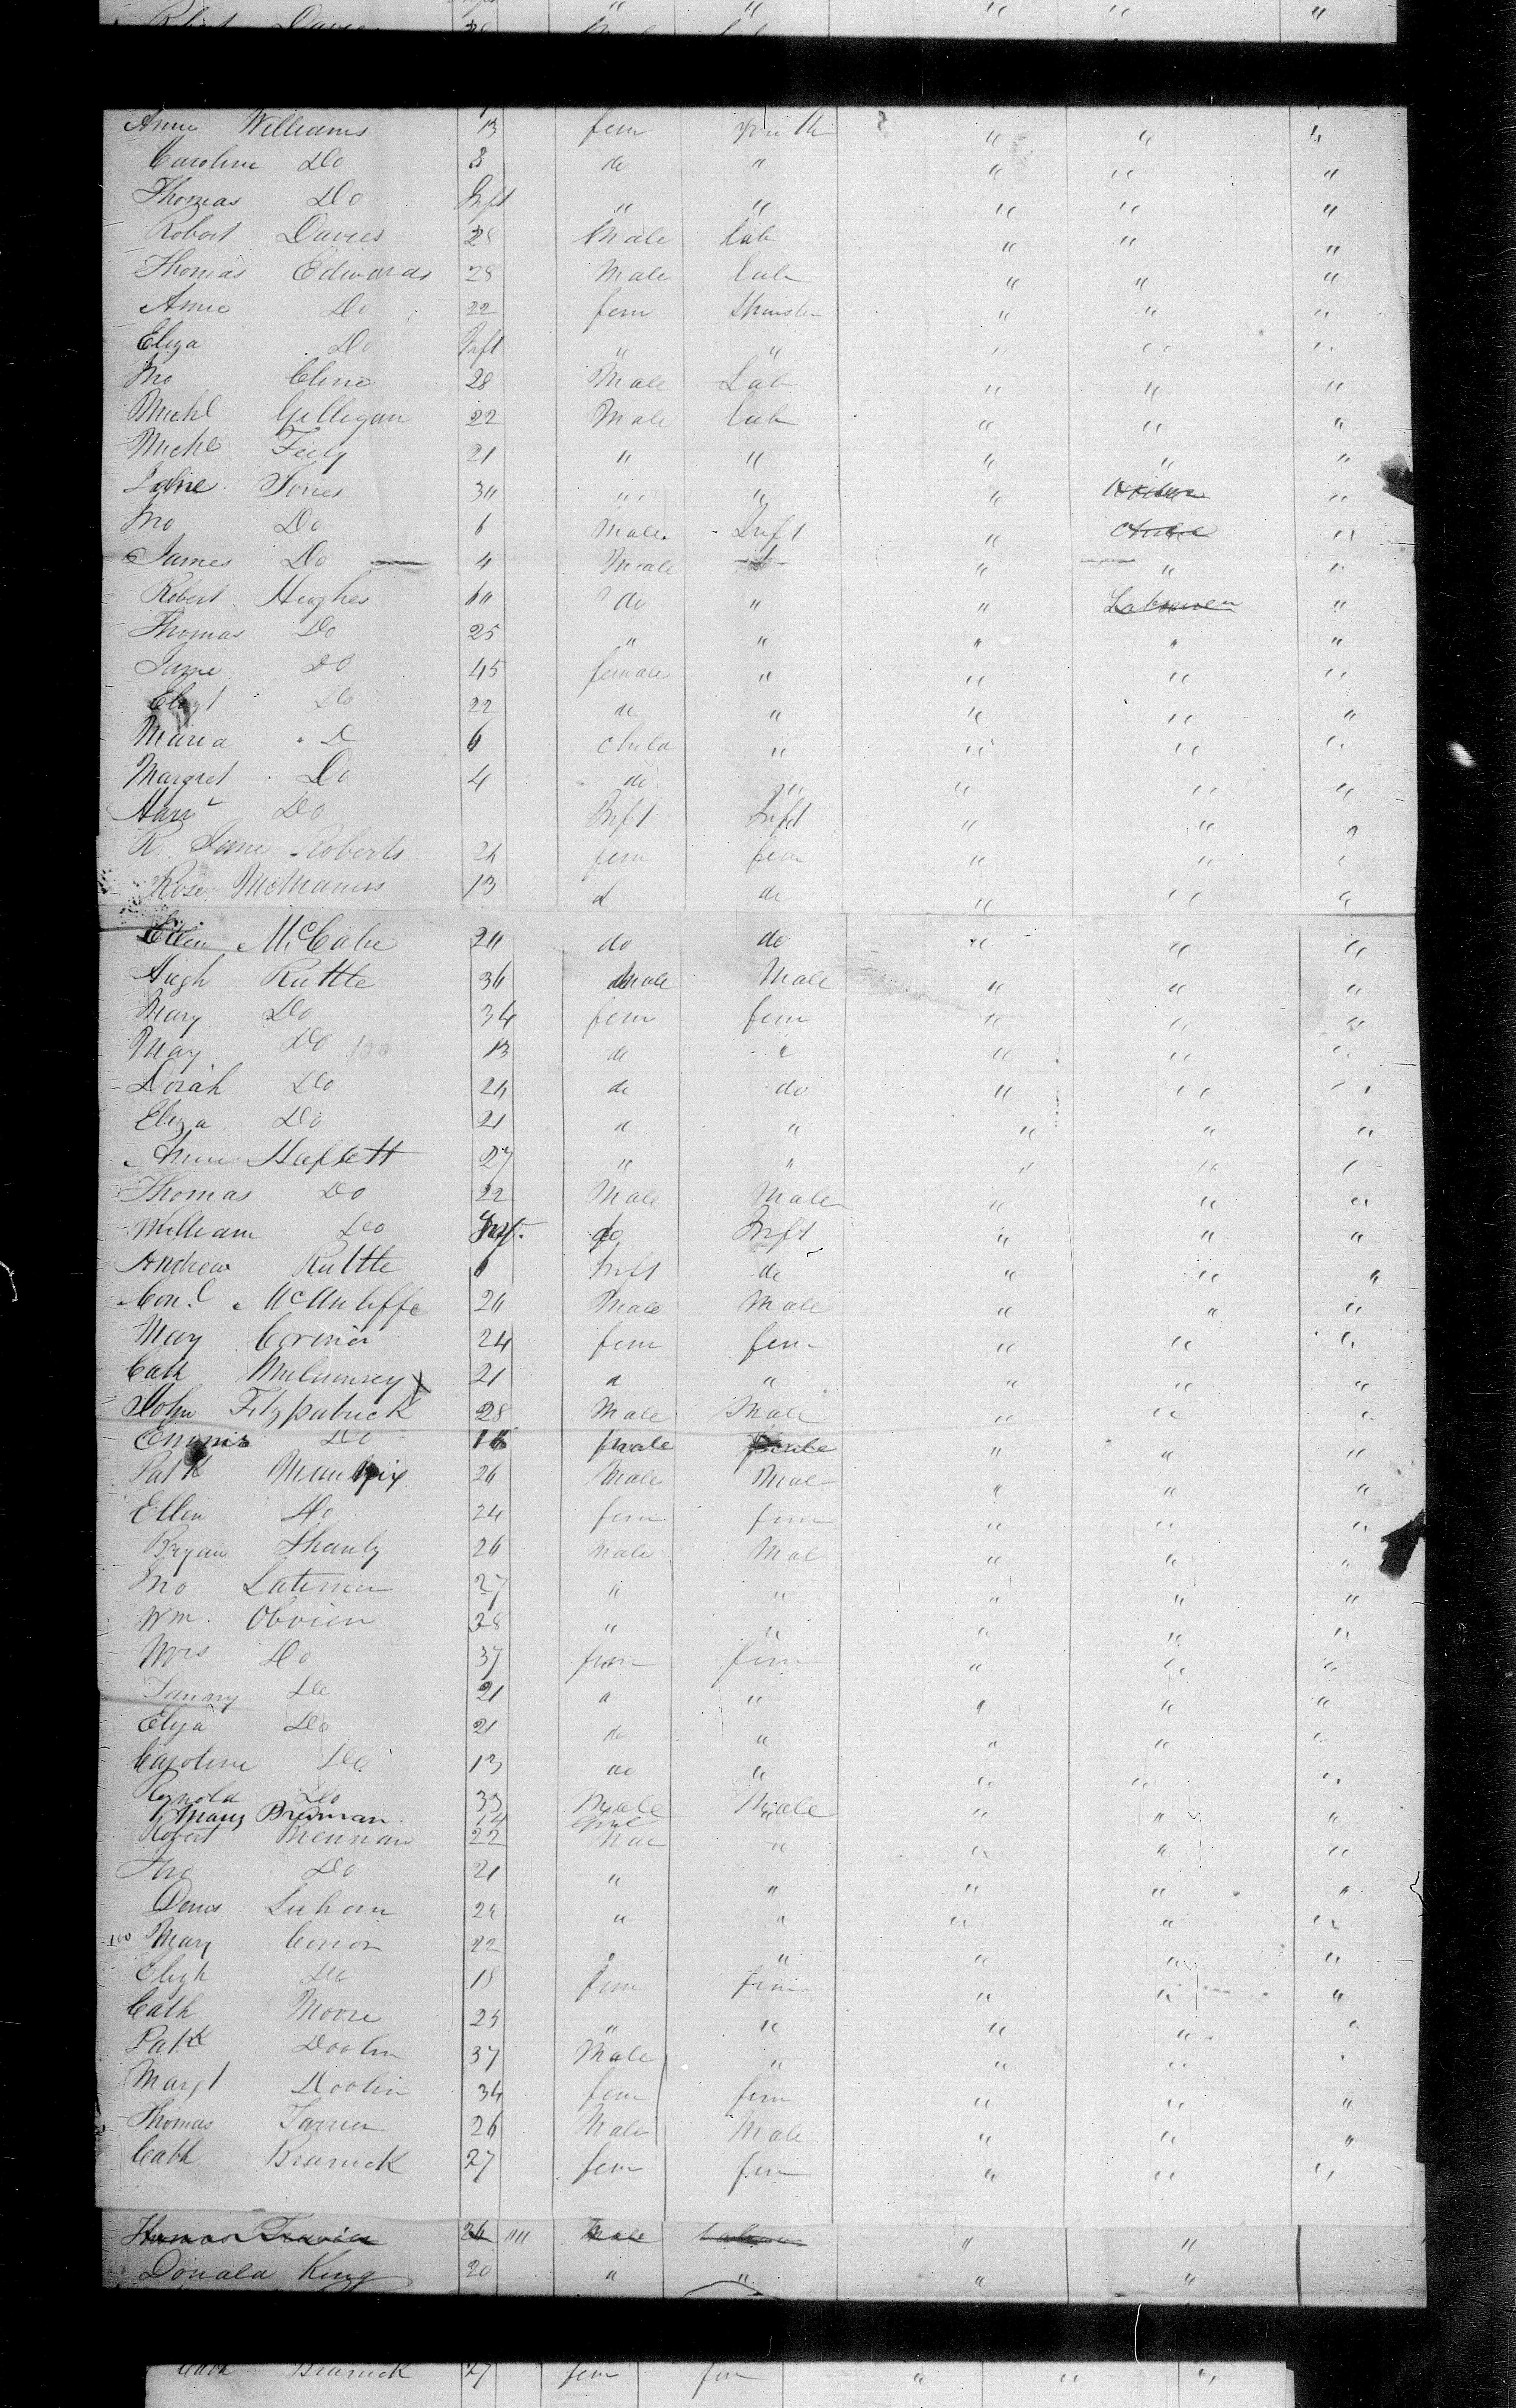 Robert Davies 28
Anne Williams 13 fem youth " " "
Caroline Do 8 do " " " "
Thomas Do Inft " " " " "
Robert Davies 28 Male Lab " " "
Thomas Edwards 28 Male Lab " " "
Anne Do 22 fem Spinster " " "
Eliza Do Inft " " " " "
Jno Cline 28 Male Lab " " "
Michl Gilligan 22 Male Lab " " "
Michl Feely 21 " " " " "
Jane Jones 30 " " " "
Jno Do 6 Male Inft " "
James Do 4 Male " " "
Robert Hughes 60 do " " Labourer "
Thomas Do 25 " " " " "
Jane Do 45 female " " " "
Elizt Do 22 do " " " "
Maria D 6 child " " " "
Margret Do 4 do " " " "
Do Inft Inft " " "
R. Jane Roberts 24 fem fem " " "
Rose McManus 13 d do " " "
Ellen McCabe 20 do do " " "
Hugh Ruttle 36 Male Male " " "
Mary Do 34 fem fem " " "
May Do 13 do " " " "
Dorah Do 24 do do " " "
Eliza Do 21 d " " " "
Anne Haslett 27 " " " " "
Thomas Do 22 Male Male " " "
William Do Inft. do Inft " " "
Andrew Ruttle 6 Inft do " " "
Conl McAuliffe 20 Male Male " " "
May 24 fem fem " " "
Cath 21 d " " " "
John Fitzpatrick 28 Male Male " " "
Do female " " "
Patk 26 Male Male " " "
Ellen Do 24 fem fem " " "
Bryan Shanly 26 Male Mal " " "
Jno Latimer 27 " " " " "
Wm. Obrien 38 " " " " "
Mrs Do 37 fem fem " " "
Fanny Do 21 d " " " "
Eliza Do 21 do " " " "
Caroline Do 13 do " " " "
Reynold Do 33 Male Male " " "
Mary Brennan
Robert Brennan 22 Mal " " " "
Tho Do 21 " " " " "
Denis 24 " " " " "
Mary Conor 22 " " " " "
Do 18 fem fem " " "
Cath Moore 25 " " " " "
Patk Doolin 37 Male " " " "
Margt Doolin 34 fem fem " " "
Thomas 26 Male Male " " "
Cath 27 fem fem " " "
26 Male " "
Donald King 20 " " " "
Cath 27 fem fem " " "